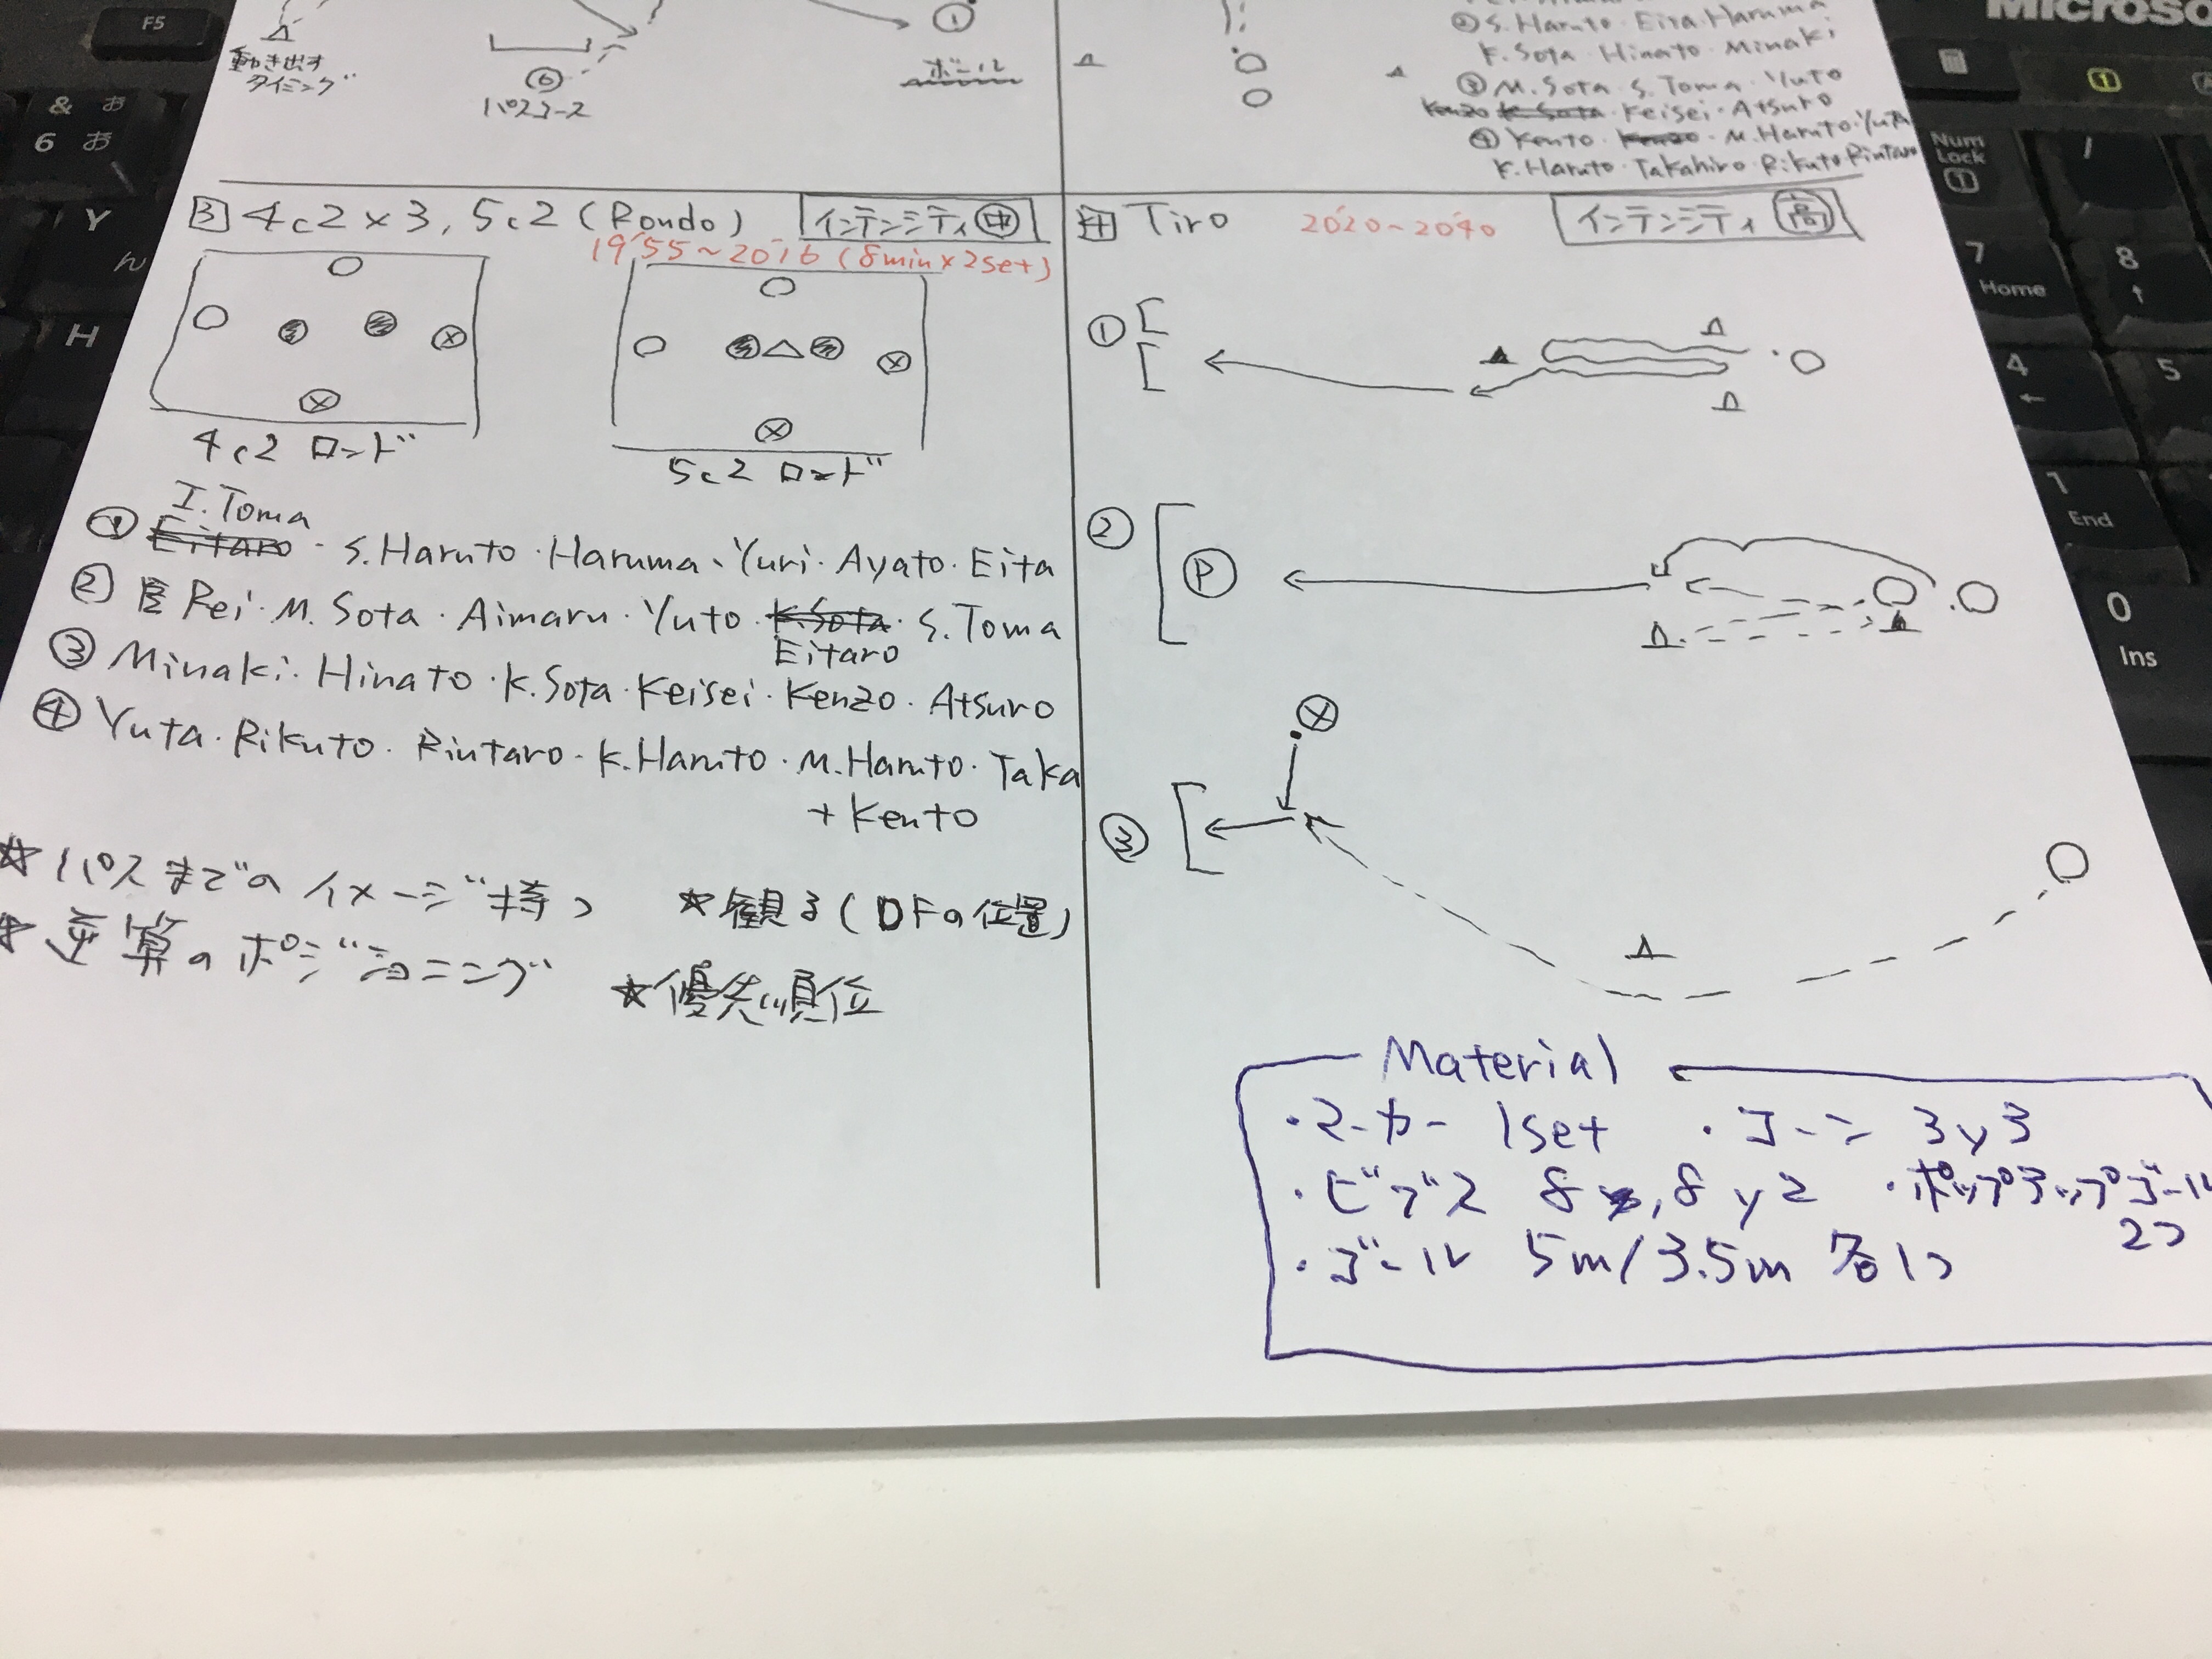 動き出す
タイミング
⑥
パスコース
①
ボール
②S.Haruto・Eita・Haruma
K.Sota・Hinato・Minaki
③M.Sota・S.Toma・Yuto
Kenzo K.Sota・Keisei・Atsuro
④Kento・Kenzo・M.Haruto・Yuta
K.Haruto・Takahiro・Rikuto・Rintaro
3 4c2×3, 5c2 (Rondo) インテンシティ 中
19'55~20'16 (8min×2set)
4c2 ロンド
5c2 ロンド
I.Toma
① Eitaro・S.Haruto・Haruma、Yuri・Ayato・Eita
② Rei・M.Sota・Aimaru・Yuto・K.Sota・S.Toma
Eitaro
③ Minaki・Hinato・K.Sota・Keisei・Kenzo・Atsuro
④ Yuta・Rikuto・Rintaro・K.Haruto・M.Haruto・Taka
+ Kento
☆パスまでのイメージ持つ ☆観る(DFの位置)
☆逆算のポジショニング ☆優先順位
4 Tiro 20'20~20'40 インテンシティ 高
①
②
P
③
Material
・マーカー 1set ・コーン 3y3
・ビブス 8, 8y2 ・ポップアップゴール
2つ
・ゴール 5m/3.5m 各1つ
F5
& お
6 お
Y ん
H
Microso
Num Lock
1
/
7 Home
8 ↑
4 ←
5
1 End
0 Ins